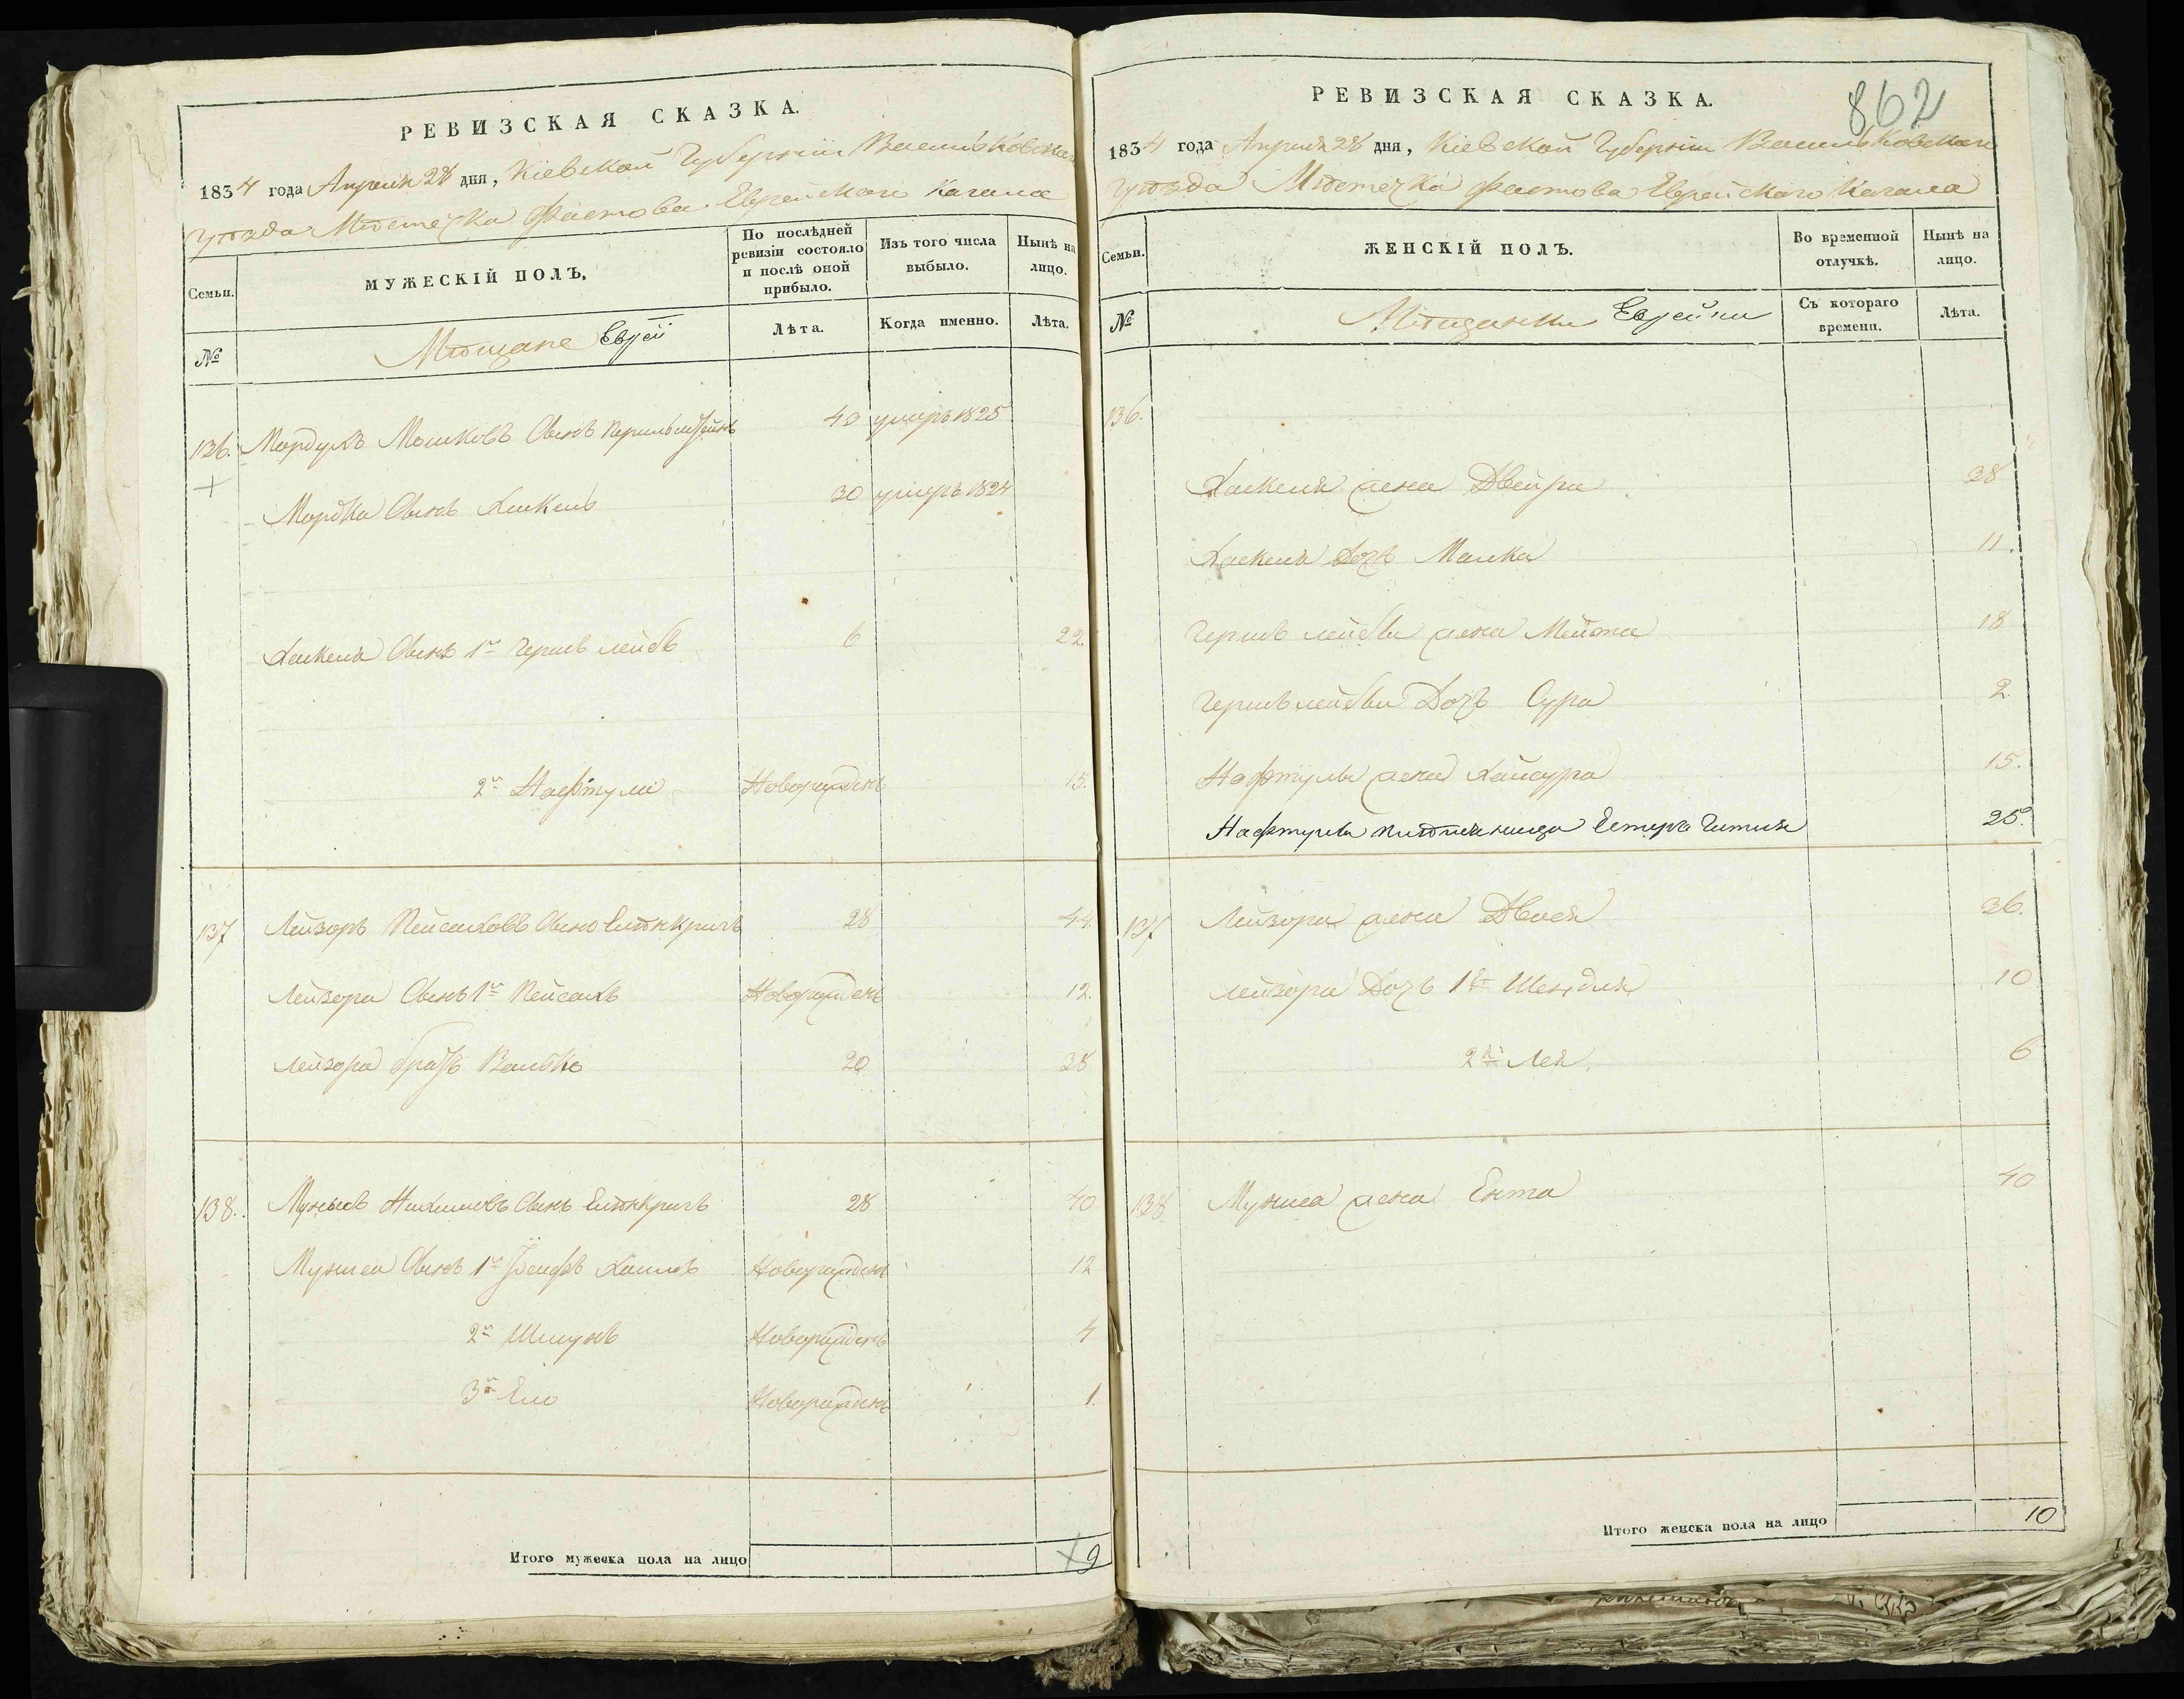 РЕВИЗСКАЯ СКАЗКА.
1834 года Апреля 28 дня, Кіевской Губерніи Васильковскаго
уѣзда Мѣстечка Фастова Еврейскаго Кагала
Семьи.
МУЖЕСКІЙ ПОЛЪ.
По послѣдней ревизіи состояло и послѣ оной прибыло.
Изъ того числа выбыло.
Нынѣ на лицо.
№
Мѣщане Евреи
Лѣта.
Когда именно.
Лѣта.
136. Мордухъ Мошковъ Сынъ 40 умеръ 1825
Мордка Сынъ Хаскель 30 умеръ 1824
Хаскеля Сынъ 1й Гершъ лейбъ 6 22.
2й Нафтули Новорожденъ 15.
137 Лейзоръ Пейсаховъ Сынъ 28 44.
Лейзора Сынъ 1й Пейсахъ Новорожденъ 12.
Лейзора братъ Волько 20 38
138. Мунышъ Сынъ 28 40
Сынъ 1й Хаимъ Новорожденъ 12
2й Шмунъ Новорожденъ 4
3й Ель Новорожденъ 1.
Итого мужеска пола на лицо 9
862
РЕВИЗСКАЯ СКАЗКА.
1834 года Апреля 28 дня, Кіевской Губерніи Васильковскаго
уѣзда Мѣстечка Фастова Еврейскаго Кагала
Семьи.
ЖЕНСКІЙ ПОЛЪ.
Во временной отлучкѣ.
Нынѣ на лицо.
№
Мѣщанки Еврейки
Съ котораго времени.
Лѣта.
136.
Хаскеля жена Двейра 38
Хаскеля Дочь Малка 11.
Гершъ лейбы жена 18
Гершъ лейбы Дочь Сура 2.
Нафтулы жена Хайсура 15.
Нафтулы Естеръ Гитля 25.
137 Лейзора жена Двося 36.
Лейзора Дочь 1я Шендля 10
2я Лея. 6
138 жена Ента 40
Итого женска пола на лицо 10